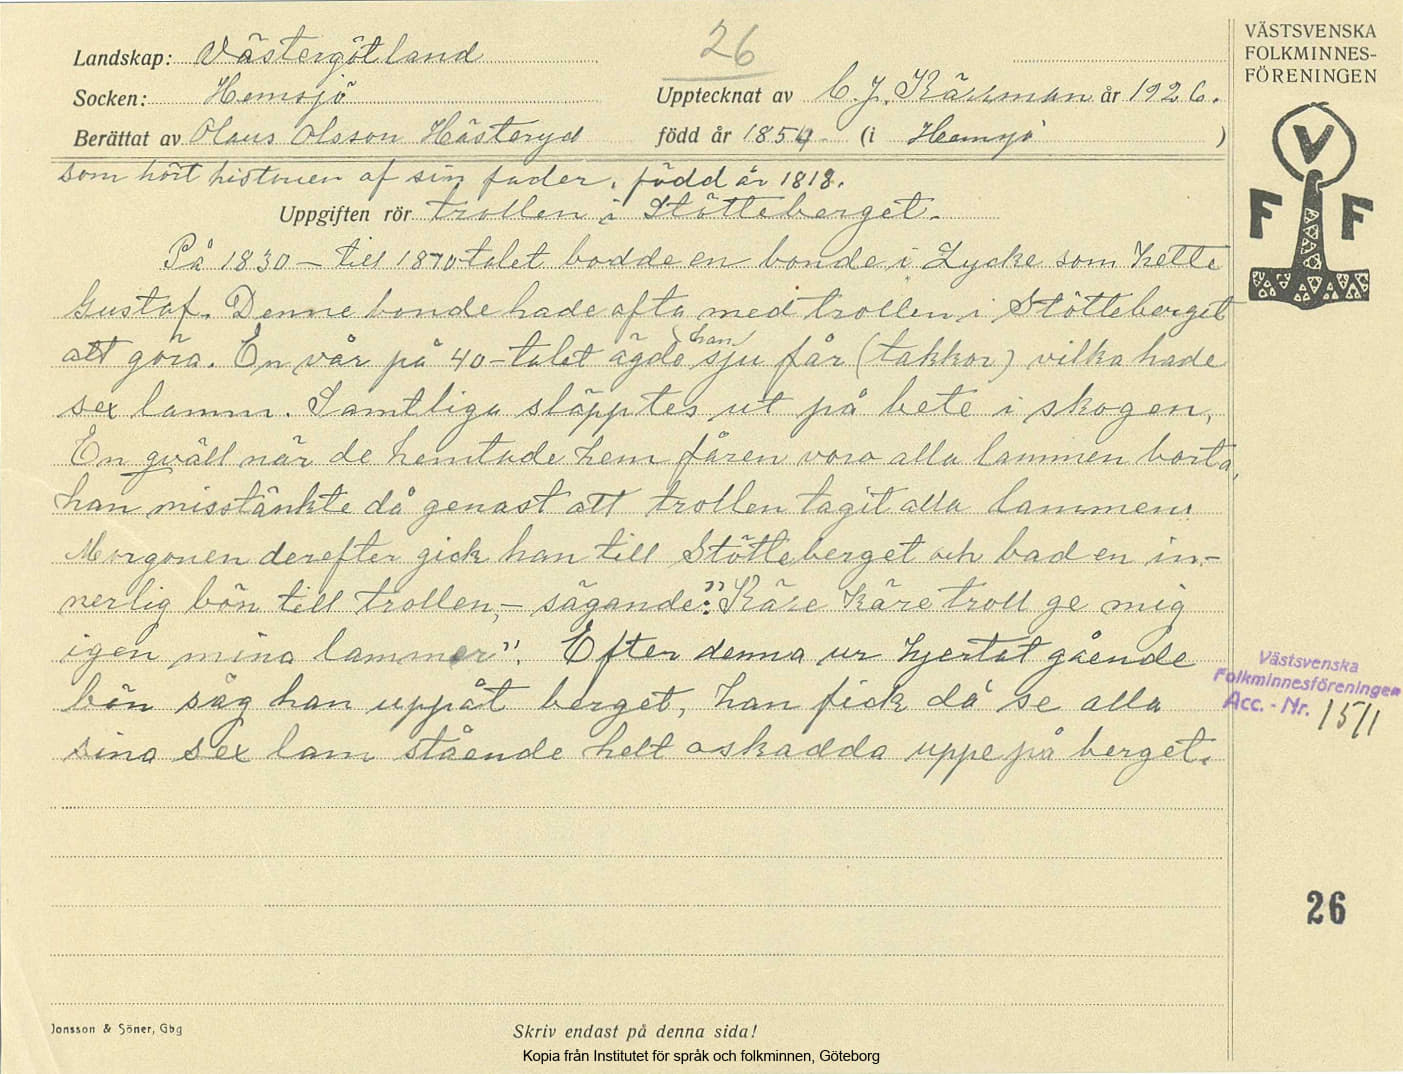 26
Landskap: Västergötland
Socken: Hemsjö
Upptecknat av C. J. Kärrman år 1926.
Berättat av Olaus Olsson Hästeryd född år 1854 (i Hemsjö )
som hört historien af sin fader, född år 1818.
Uppgiften rör trollen i Stötteberget.
På 1830 – till 1870-talet bodde en bonde i Lycke som hette
Gustaf. Denne bonde hade ofta med trollen i Stötteberget
att göra. En vår på 40-talet ägde han sju får (takkor) vilka hade
sex lamm. Samtliga släpptes ut på bete i skogen,
En qväll när de hemtade hem fåren voro alla lammen borta,
han misstänkte då genast att trollen tagit alla lammen.
Morgonen derefter gick han till Stötteberget och bad en in-
nerlig bön till trollen, – sägande: "Käre käre troll ge mig
igen mina lammer". Efter denna ur hjertat gående
bön såg han uppåt berget, han fick då se alla
sina sex lam stående helt oskadda uppe på berget.
Jonsson & Söner, Gbg
Skriv endast på denna sida!
Kopia från Institutet för språk och folkminnen, Göteborg
VÄSTSVENSKA
FOLKMINNES-
FÖRENINGEN
V
F F
Västsvenska
Folkminnesföreningen
Acc. - Nr. 1511
26